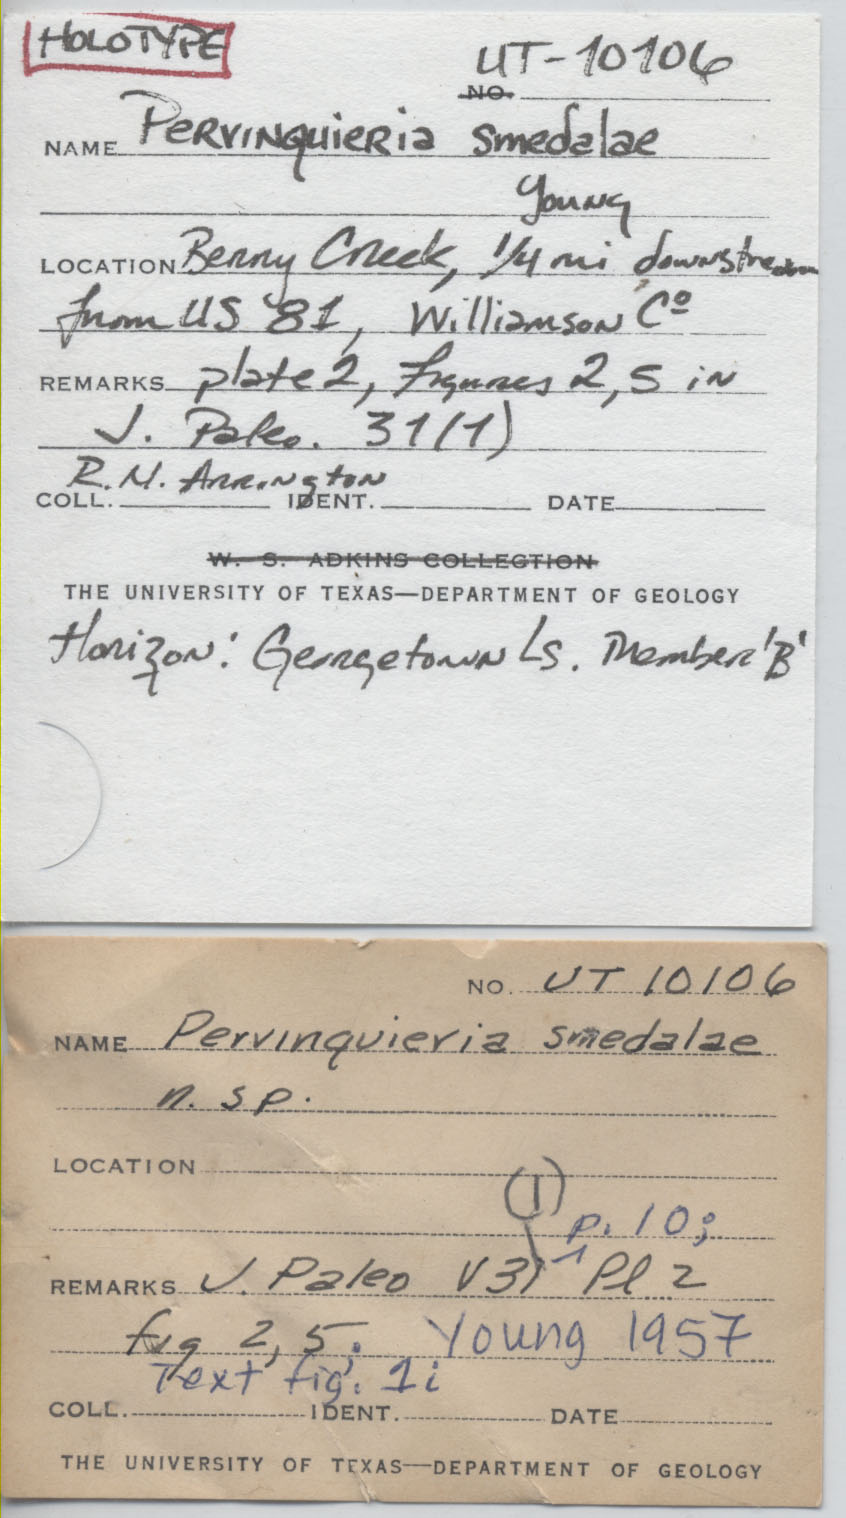 HOLOTYPE
UT-10106
NO.
NAME Pervinquieria smedalae
Young
LOCATION Berry Creek, 1/4 mi downstream
from US 81, Williamson Cº
REMARKS plate 2, figures 2, 5 in
J. Paleo. 31(1)
R. M. Arrington
COLL. IDENT. DATE
W. S. ADKINS COLLECTION
THE UNIVERSITY OF TEXAS—DEPARTMENT OF GEOLOGY
Horizon: Georgetown Ls. Member 'B'
NO. UT 10106
NAME Pervinquieria smedalae
n. sp.
LOCATION
(1) p. 10;
REMARKS J. Paleo V31 Pl 2
fig 2, 5; Young 1957
Text fig. 1i
COLL. IDENT. DATE
THE UNIVERSITY OF TEXAS—DEPARTMENT OF GEOLOGY